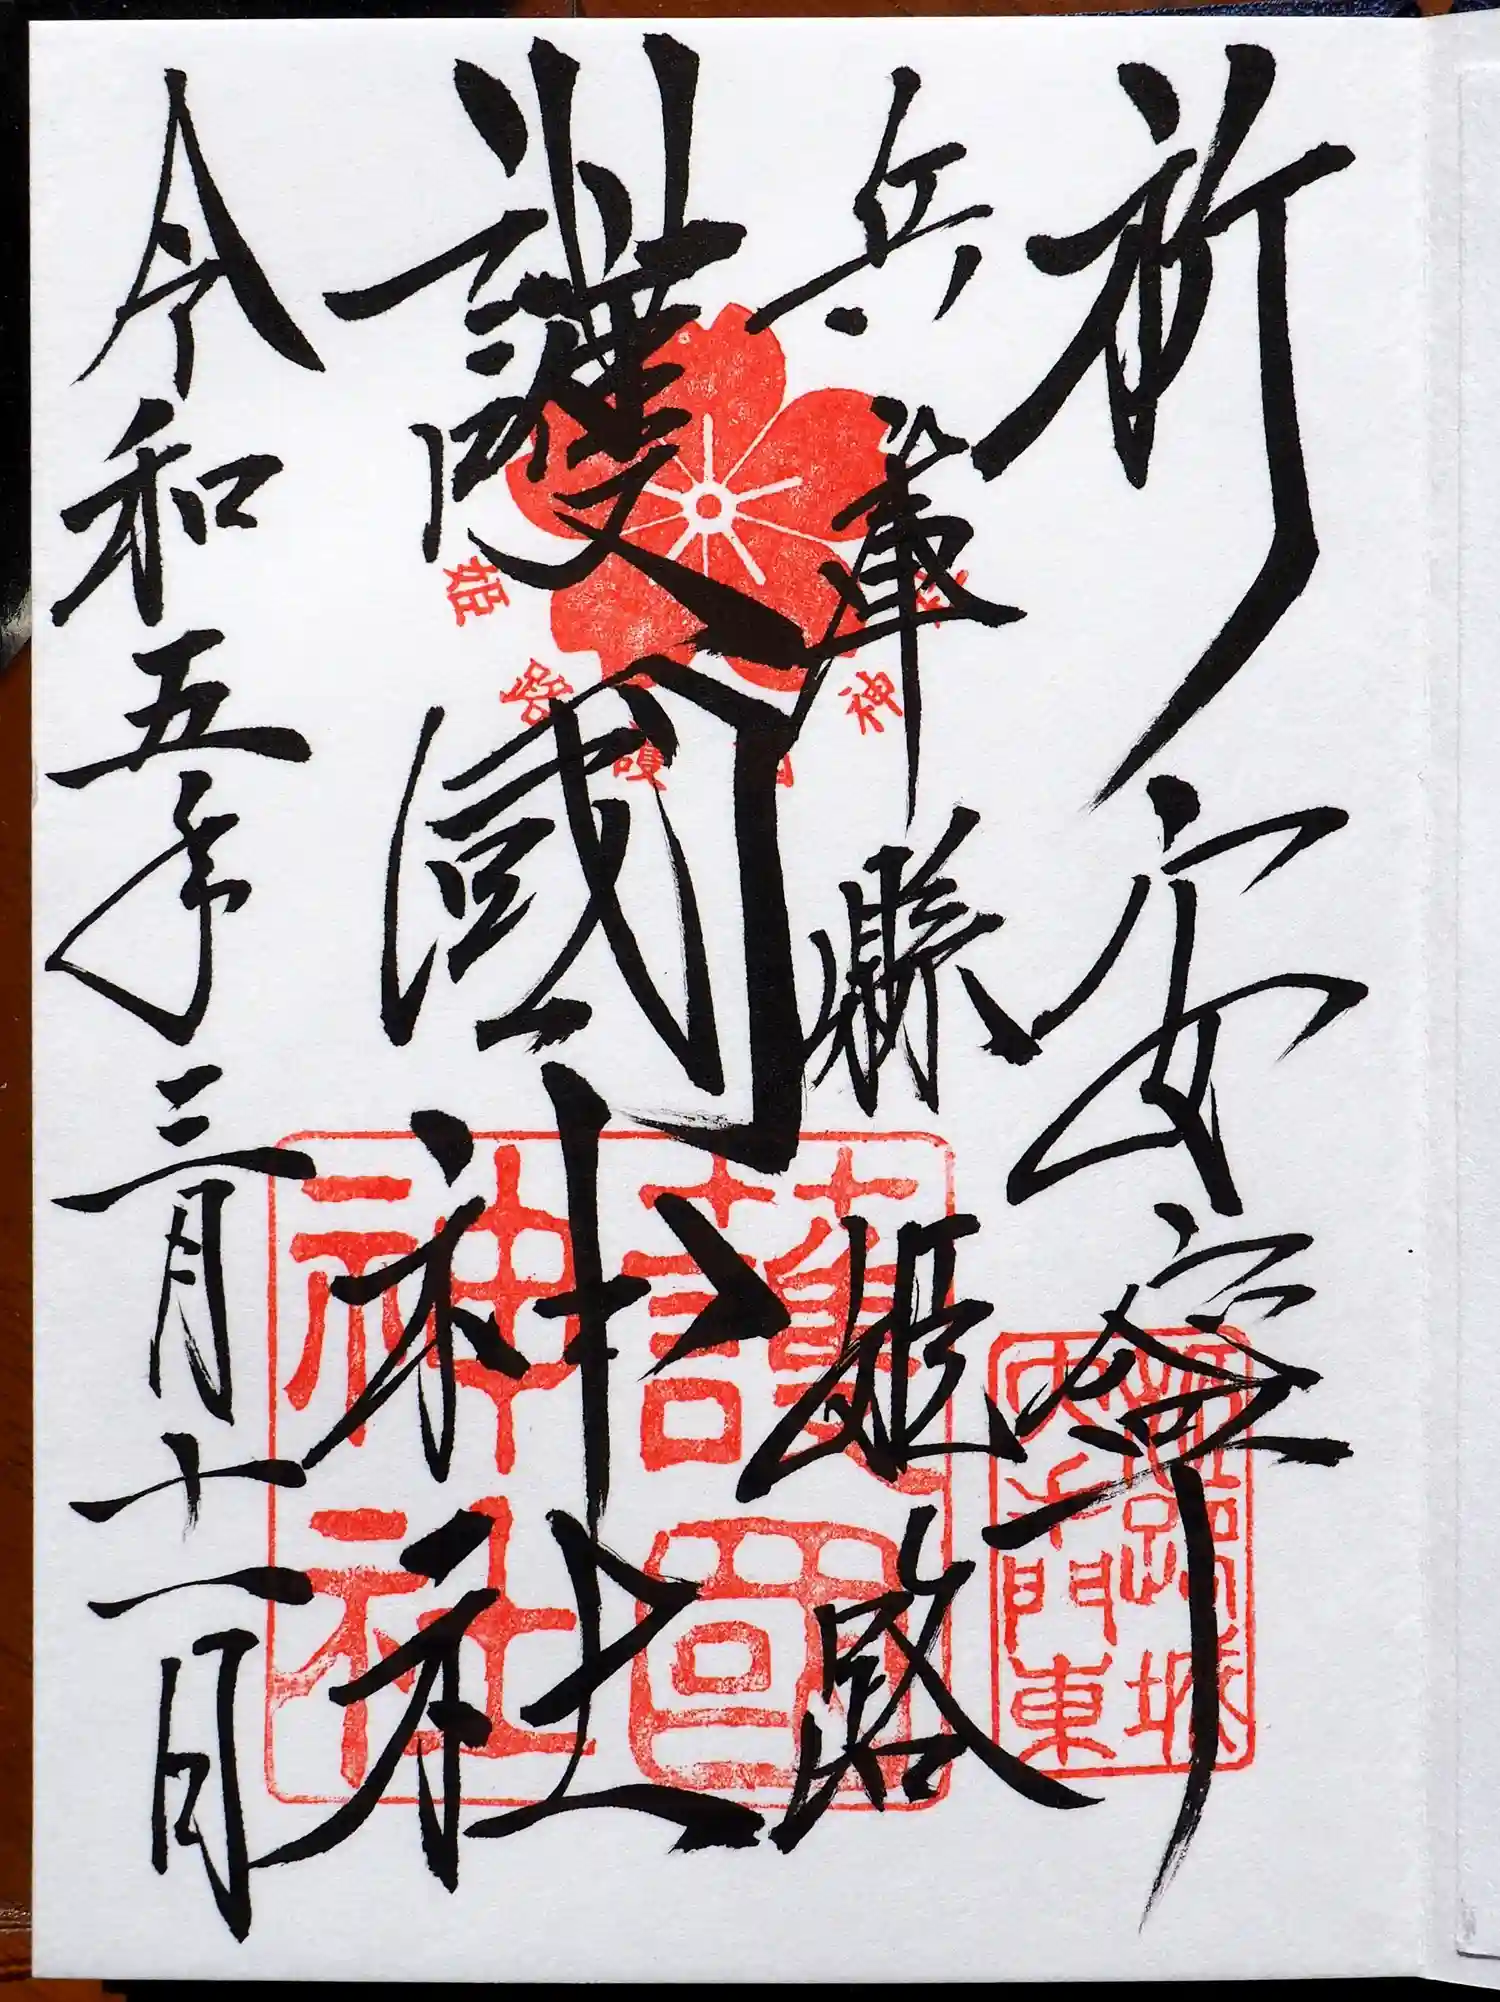 祈安寧
姫路城
大手門東
兵庫縣姫路
護國神社
姫路護国神社
護國
神社
令和五年三月十一日